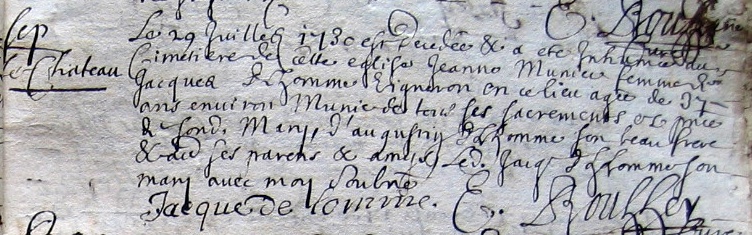 E. Roussey
Sep
Le Chateau
Le 29 Juilles 1730 est decedée & a eté Inhumée au
Cimetiere de cette eglise Jeanne Munier femme de
Jacques delhomme vigneron en ce lieu agée de 37
ans environ Munie de tous ses sacrements es pnce
de sond. Mary, d'augustin delhomme son beau frere
& aus ses parens & amys, Led. Jacq. delhomme son
mary avec moy soubné
Jacque de lomme. E. Roussey